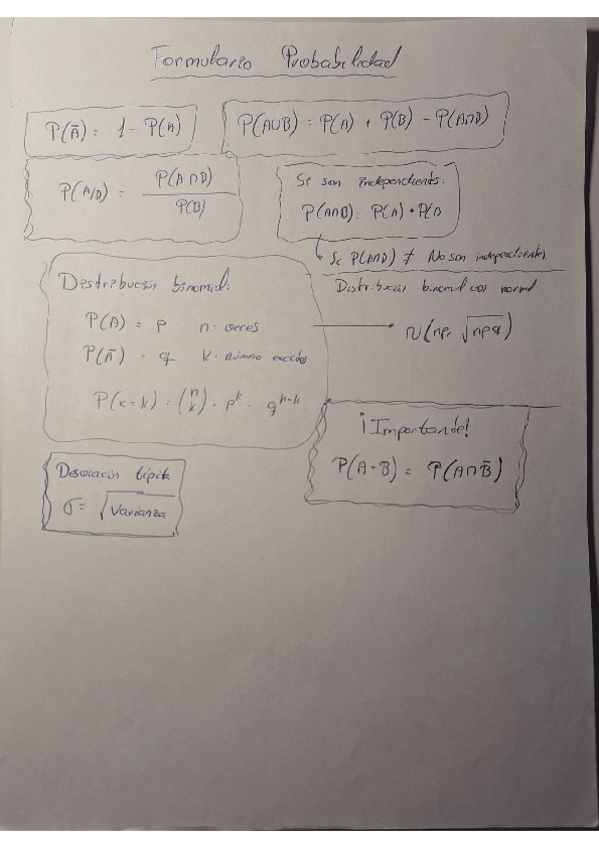 Formulario Probabilidad
P(Ā) = 1 - P(A)
P(A∪B) = P(A) + P(B) - P(A∩B)
P(A/B) = P(A∩B) / P(B)
Si son independientes:
P(A∩B) = P(A) · P(B
Si P(A∩B) ≠ No son independientes.
Distribución binomial.
P(A) = p n: veces
P(Ā) = q k: número
P(x=k) = (n k) · p^k · q^n-k
Distribución binomial normal
N(np, √npq)
¡Importante!
P(A-B) = P(A∩B̄)
Desviación típica
σ = √Varianza